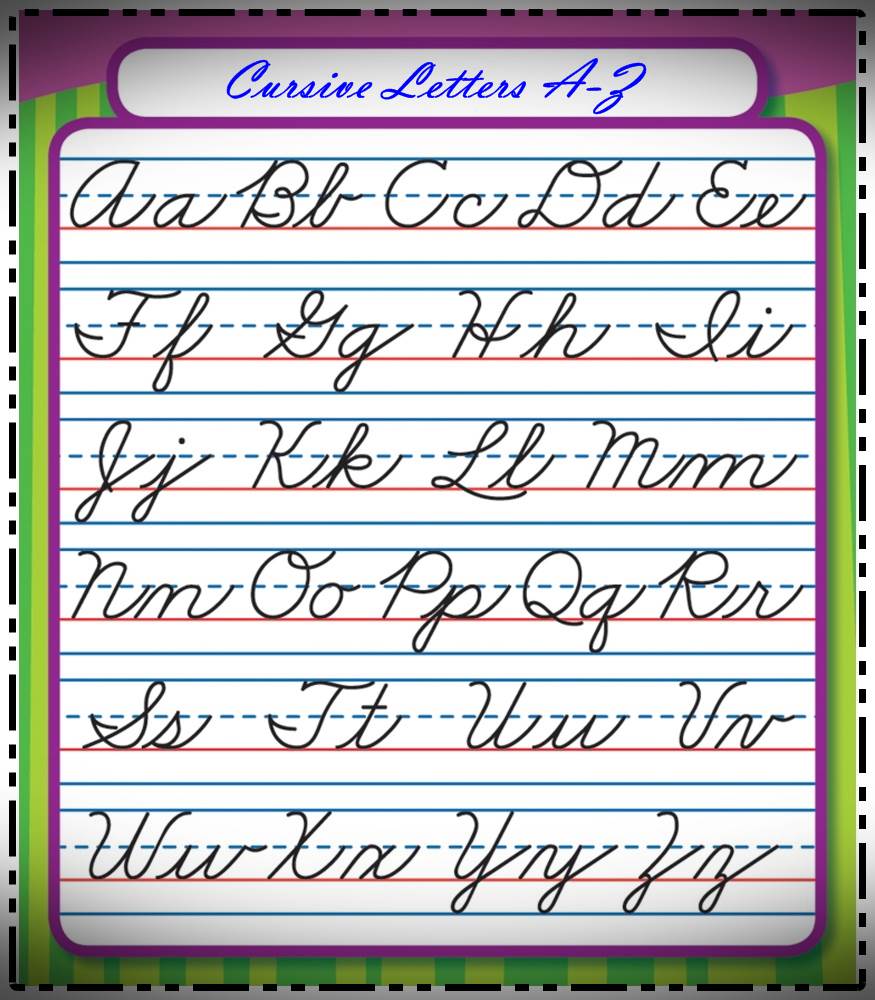 Cursive Letters A-Z
Aa Bb Cc Dd Ee
Ff Gg Hh Ii
Jj Kk Ll Mm
Nn Oo Pp Qq Rr
Ss Tt Uu Vv
Ww Xx Yy Zz